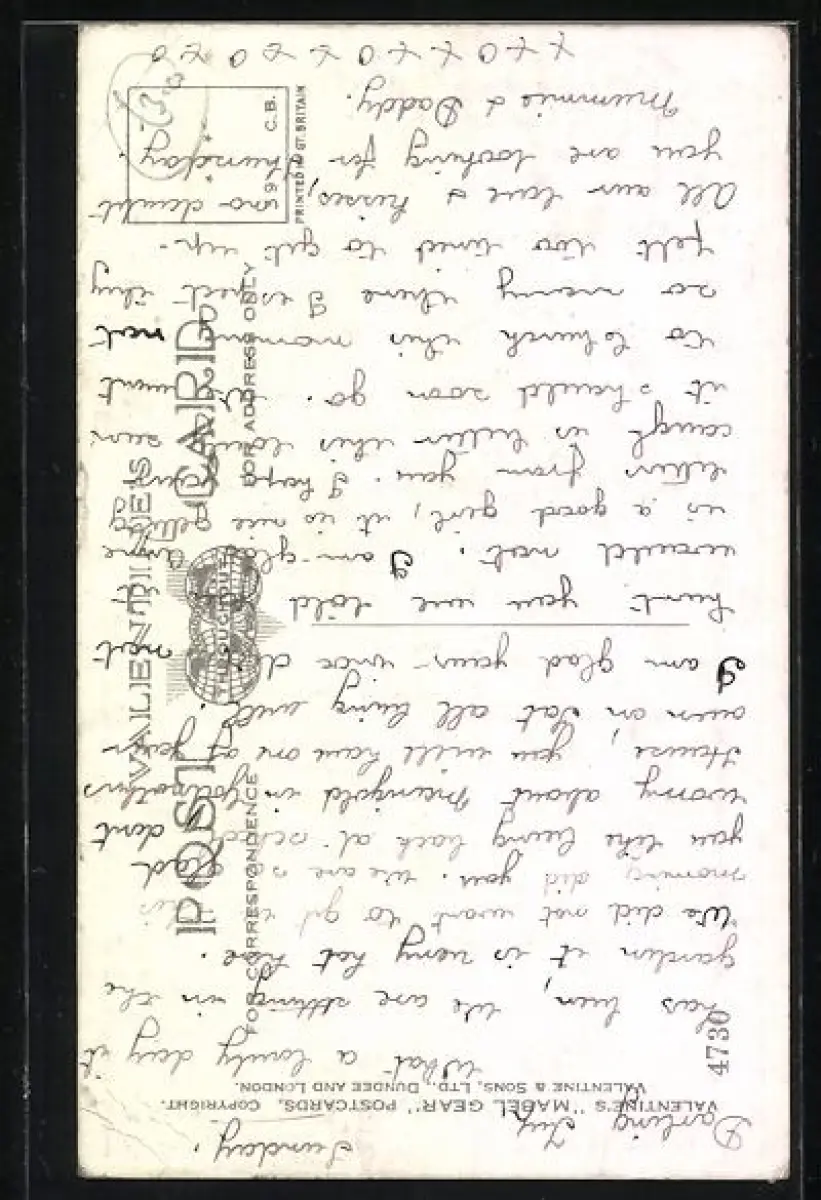 Sunday.
Darling
VALENTINE'S "MABEL GEAR" POSTCARDS. COPYRIGHT.
VALENTINE & SONS, LTD., DUNDEE AND LONDON.
What a lovely day it
has been, we are sitting in the
garden it is very hot here.
We did not want to get up this
morning did you. We are so glad
you like being back at school dont
worry about Marigold in
House, you will have one of your
own or Pat all being well.
I am glad your did not
hurt you we told you it
would not. I am glad Anne
is a good girl, it is nice getting
letters from you. I hope your
cough is better this lovely sun
it should soon go. We went
to church this morning not
so many there I expect they
felt too tired to get up.
All our love & kisses, no doubt
you are looking for Thursday.
Mummie & Daddy.
x x o x x o x o x o
VALENTINE'S
POST CARD
THROUGHOUT
FOR CORRESPONDENCE
FOR ADDRESS ONLY
PRINTED IN GT. BRITAIN
C.B.
4730